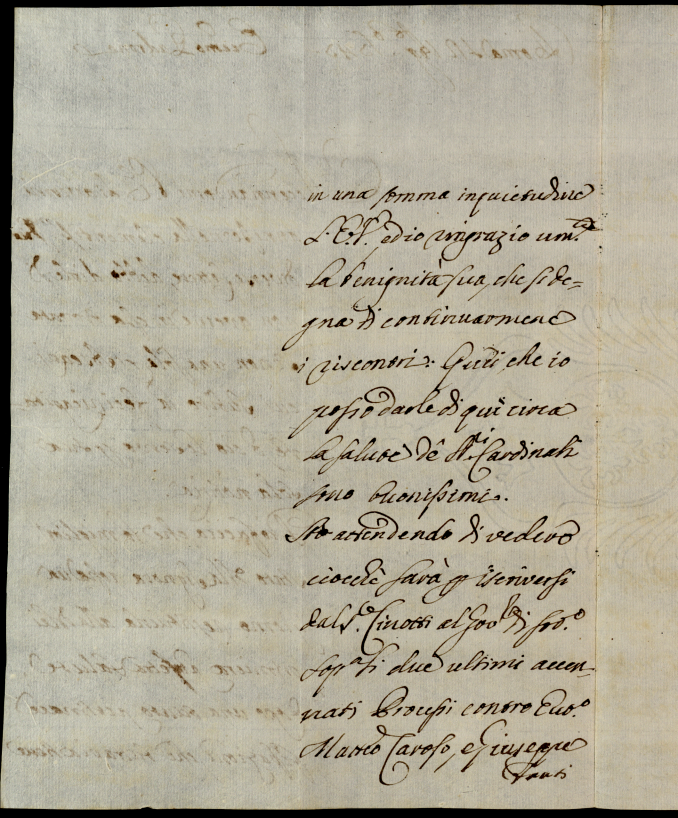 in una somma inquietudine
S. E. V. ed io ringrazio um.te
la benignità sua, che si de-
gna di continuarmene
i riscontri: Quei che io
posso darle di quì circa
la salute de SS.ri Cardinali
sono buonissimi.
Sto attendendo di vedere
ciocchè sarà p iscriversi
dal S.e Cinotti al Gov.re di
sop.a li due ultimi accen-
nati Processi contro
Matteo Caroso, e Giuseppe